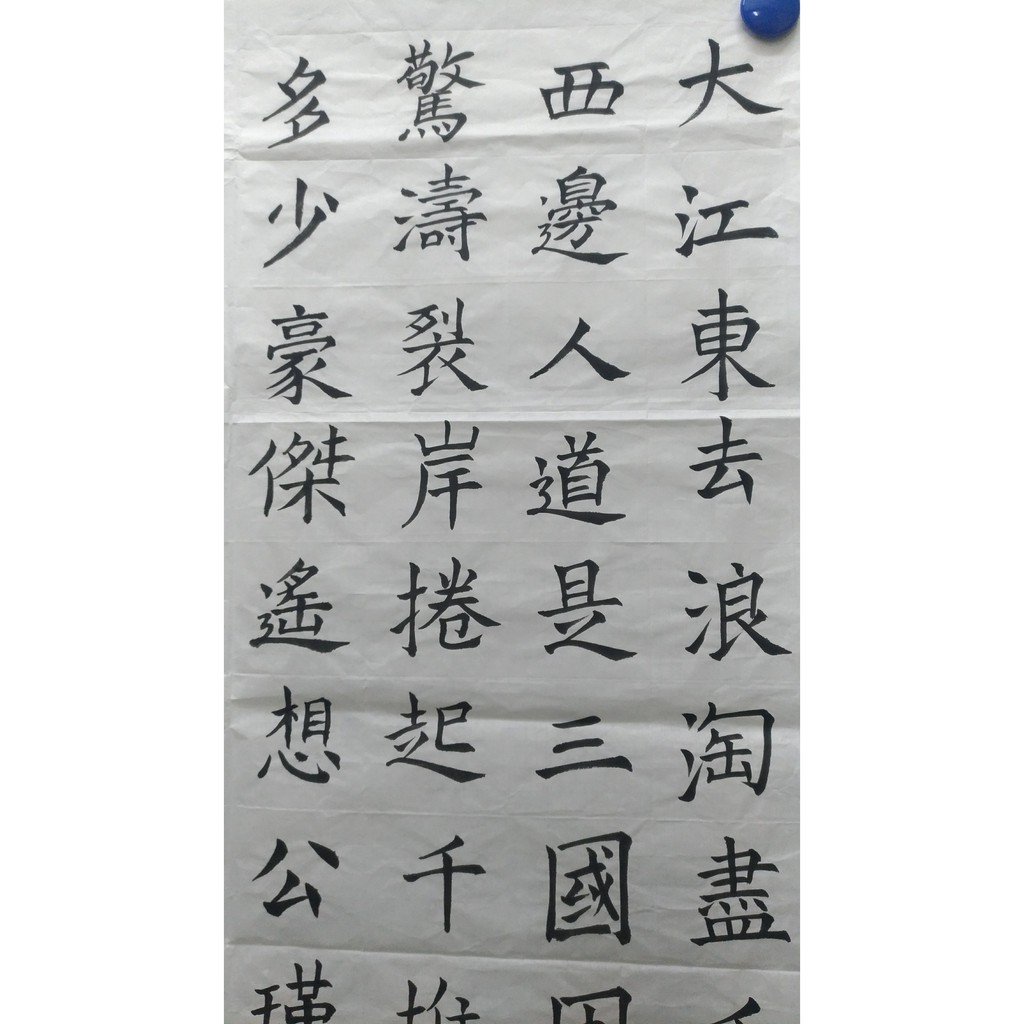 大江東去浪淘盡
西邊人道是三國
驚濤裂岸捲起千
多少豪傑遙想公